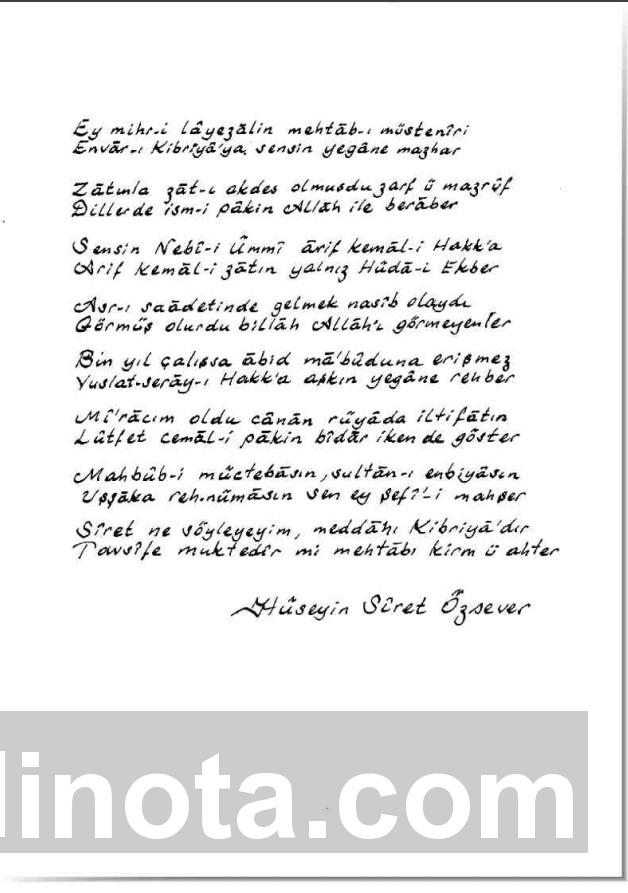 Ey mihr-i lâyezâlin mehtâb-ı müstenîri
Envâr-ı Kibriyâ'ya, sensin yegâne mazhar
Zâtınla zât-ı akdes olmuşdu zarf ü mazrûf
Dillerde ism-i pâkin Allâh ile berâber
Sensin Nebî-i Ümmî ârif kemâl-i Hakk'a
Ârif kemâl-i zâtın yalnız Hûdâ-i Ekber
Asr-ı saâdetinde gelmek nasîb olaydı
Görmüş olurdu billâh Allâh'ı görmeyenler
Bin yıl çalışsa âbid mâ'bûduna erişmez
Vuslat-serây-ı Hakk'a aşkın yegâne rehber
Mi'râcım oldu cânân rüyâda iltifâtın
Lûtfet cemâl-i pâkin bîdâr iken de göster
Mahbûb-i müctebâsın, sultân-ı enbiyâsın
Uşşâka reh-nümâsın sen ey şefî'-i mahşer
Sîret ne söyleyeyim, meddâhı Kibriyâ'dır
Tavsîfe muktedir mi mehtâbı kirm ü ahter
Hüseyin Sîret Özsever
linota.com